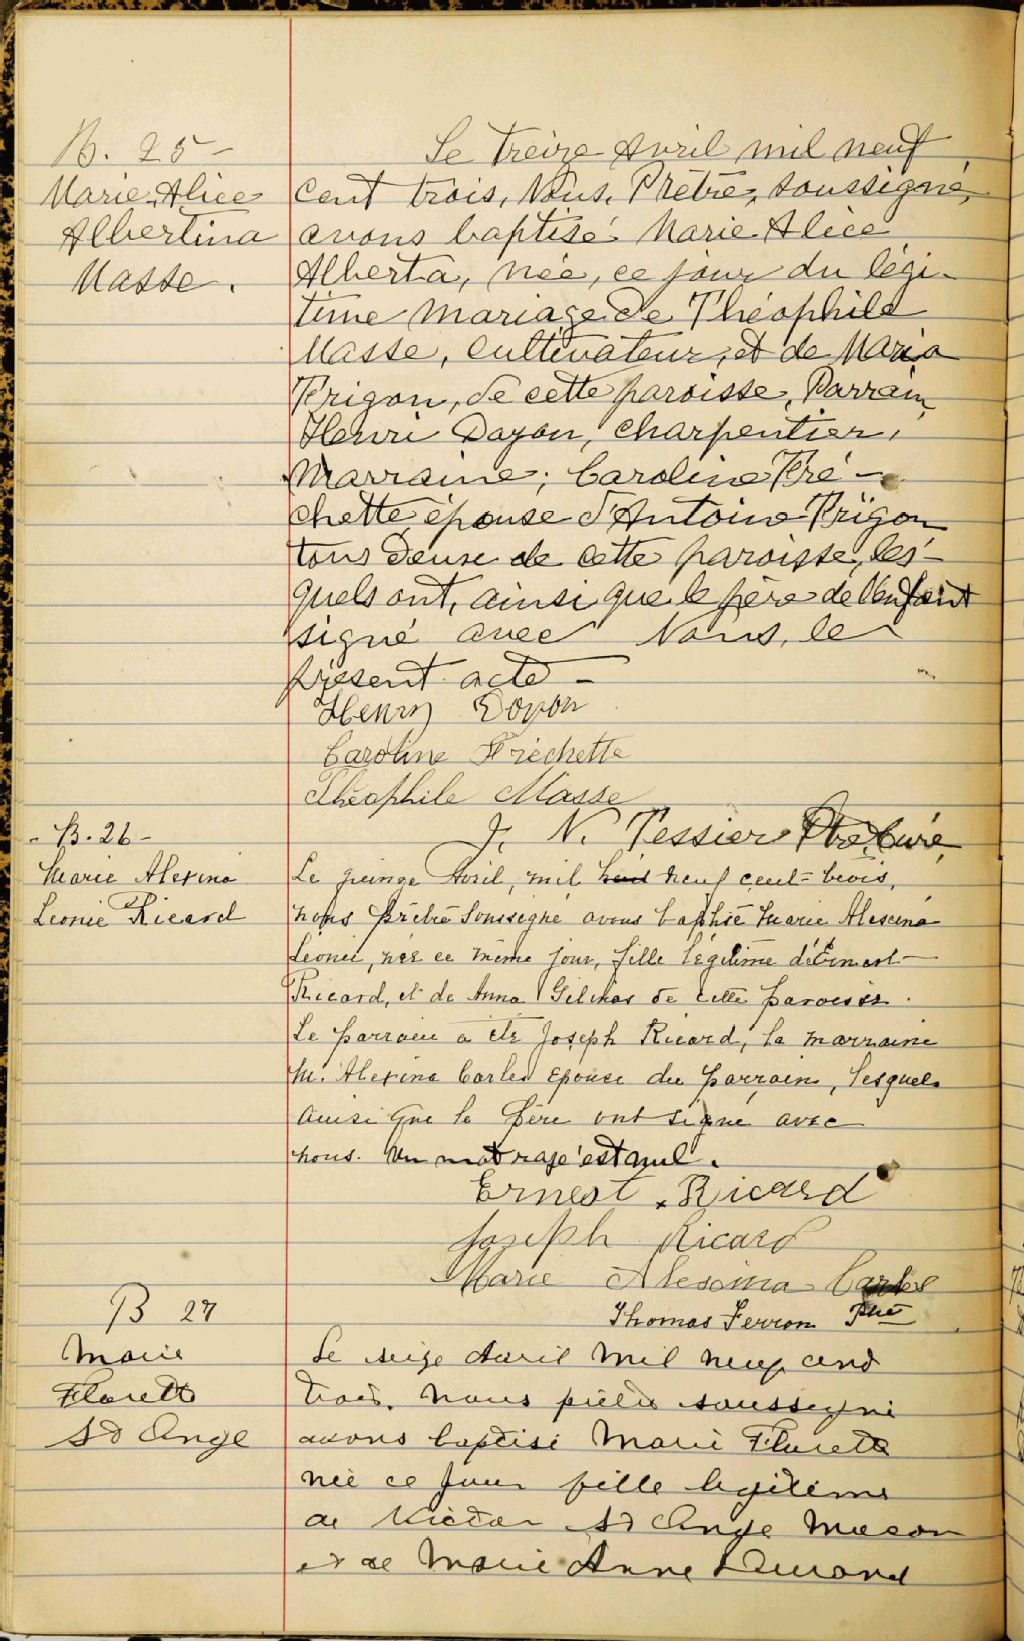 B. 25 -
Marie Alice
Albertina
Masse.
Le treize Avril mil neuf
cent trois, Nous, Prêtre, soussigné,
avons baptisé Marie Alice
Alberta, née, ce jour du légi-
time mariage de Théophile
Masse, cultivateur, et de Maria
Trigon, de cette paroisse, Parrain,
Henri Doyon, charpentier,
Marraine; Caroline Fré-
chette épouse d'Antoine Trigon
tous deux de cette paroisse, les-
quels ont, ainsi que le père de l'enfant
signé avec Nous, le
présent acte -
Henry Doyon
Caroline Fréchette
Théophile Masse
J. N. Tessier Ptre, Curé,
- B. 26 -
Marie Alexina
Leonie Ricard
Le quinze Avril, mil huit neuf cent-trois,
nous prêtre soussigné avons baptisé Marie Alexina
Leonie, née ce même jour, fille légitime d'Ernest
Ricard, et de Anna Gelinas de cette paroisse.
Le parrain a été Joseph Ricard, la marraine
M. Alexina Carles épouse du parrain, lesquels
ainsi que le père ont signé avec
nous. Un mot rayé est nul.
Ernest Ricard
Joseph Ricard
Marie Alexina Carles
Thomas Ferron Ptre
B 27
Marie
Florette
St Ange
Le seize Avril mil neuf cent
trois, nous prêtre soussigné
avons baptisé Marie Florette
née ce jour fille légitime
de Victor St Ange Macon
et de Marie Anne Durand